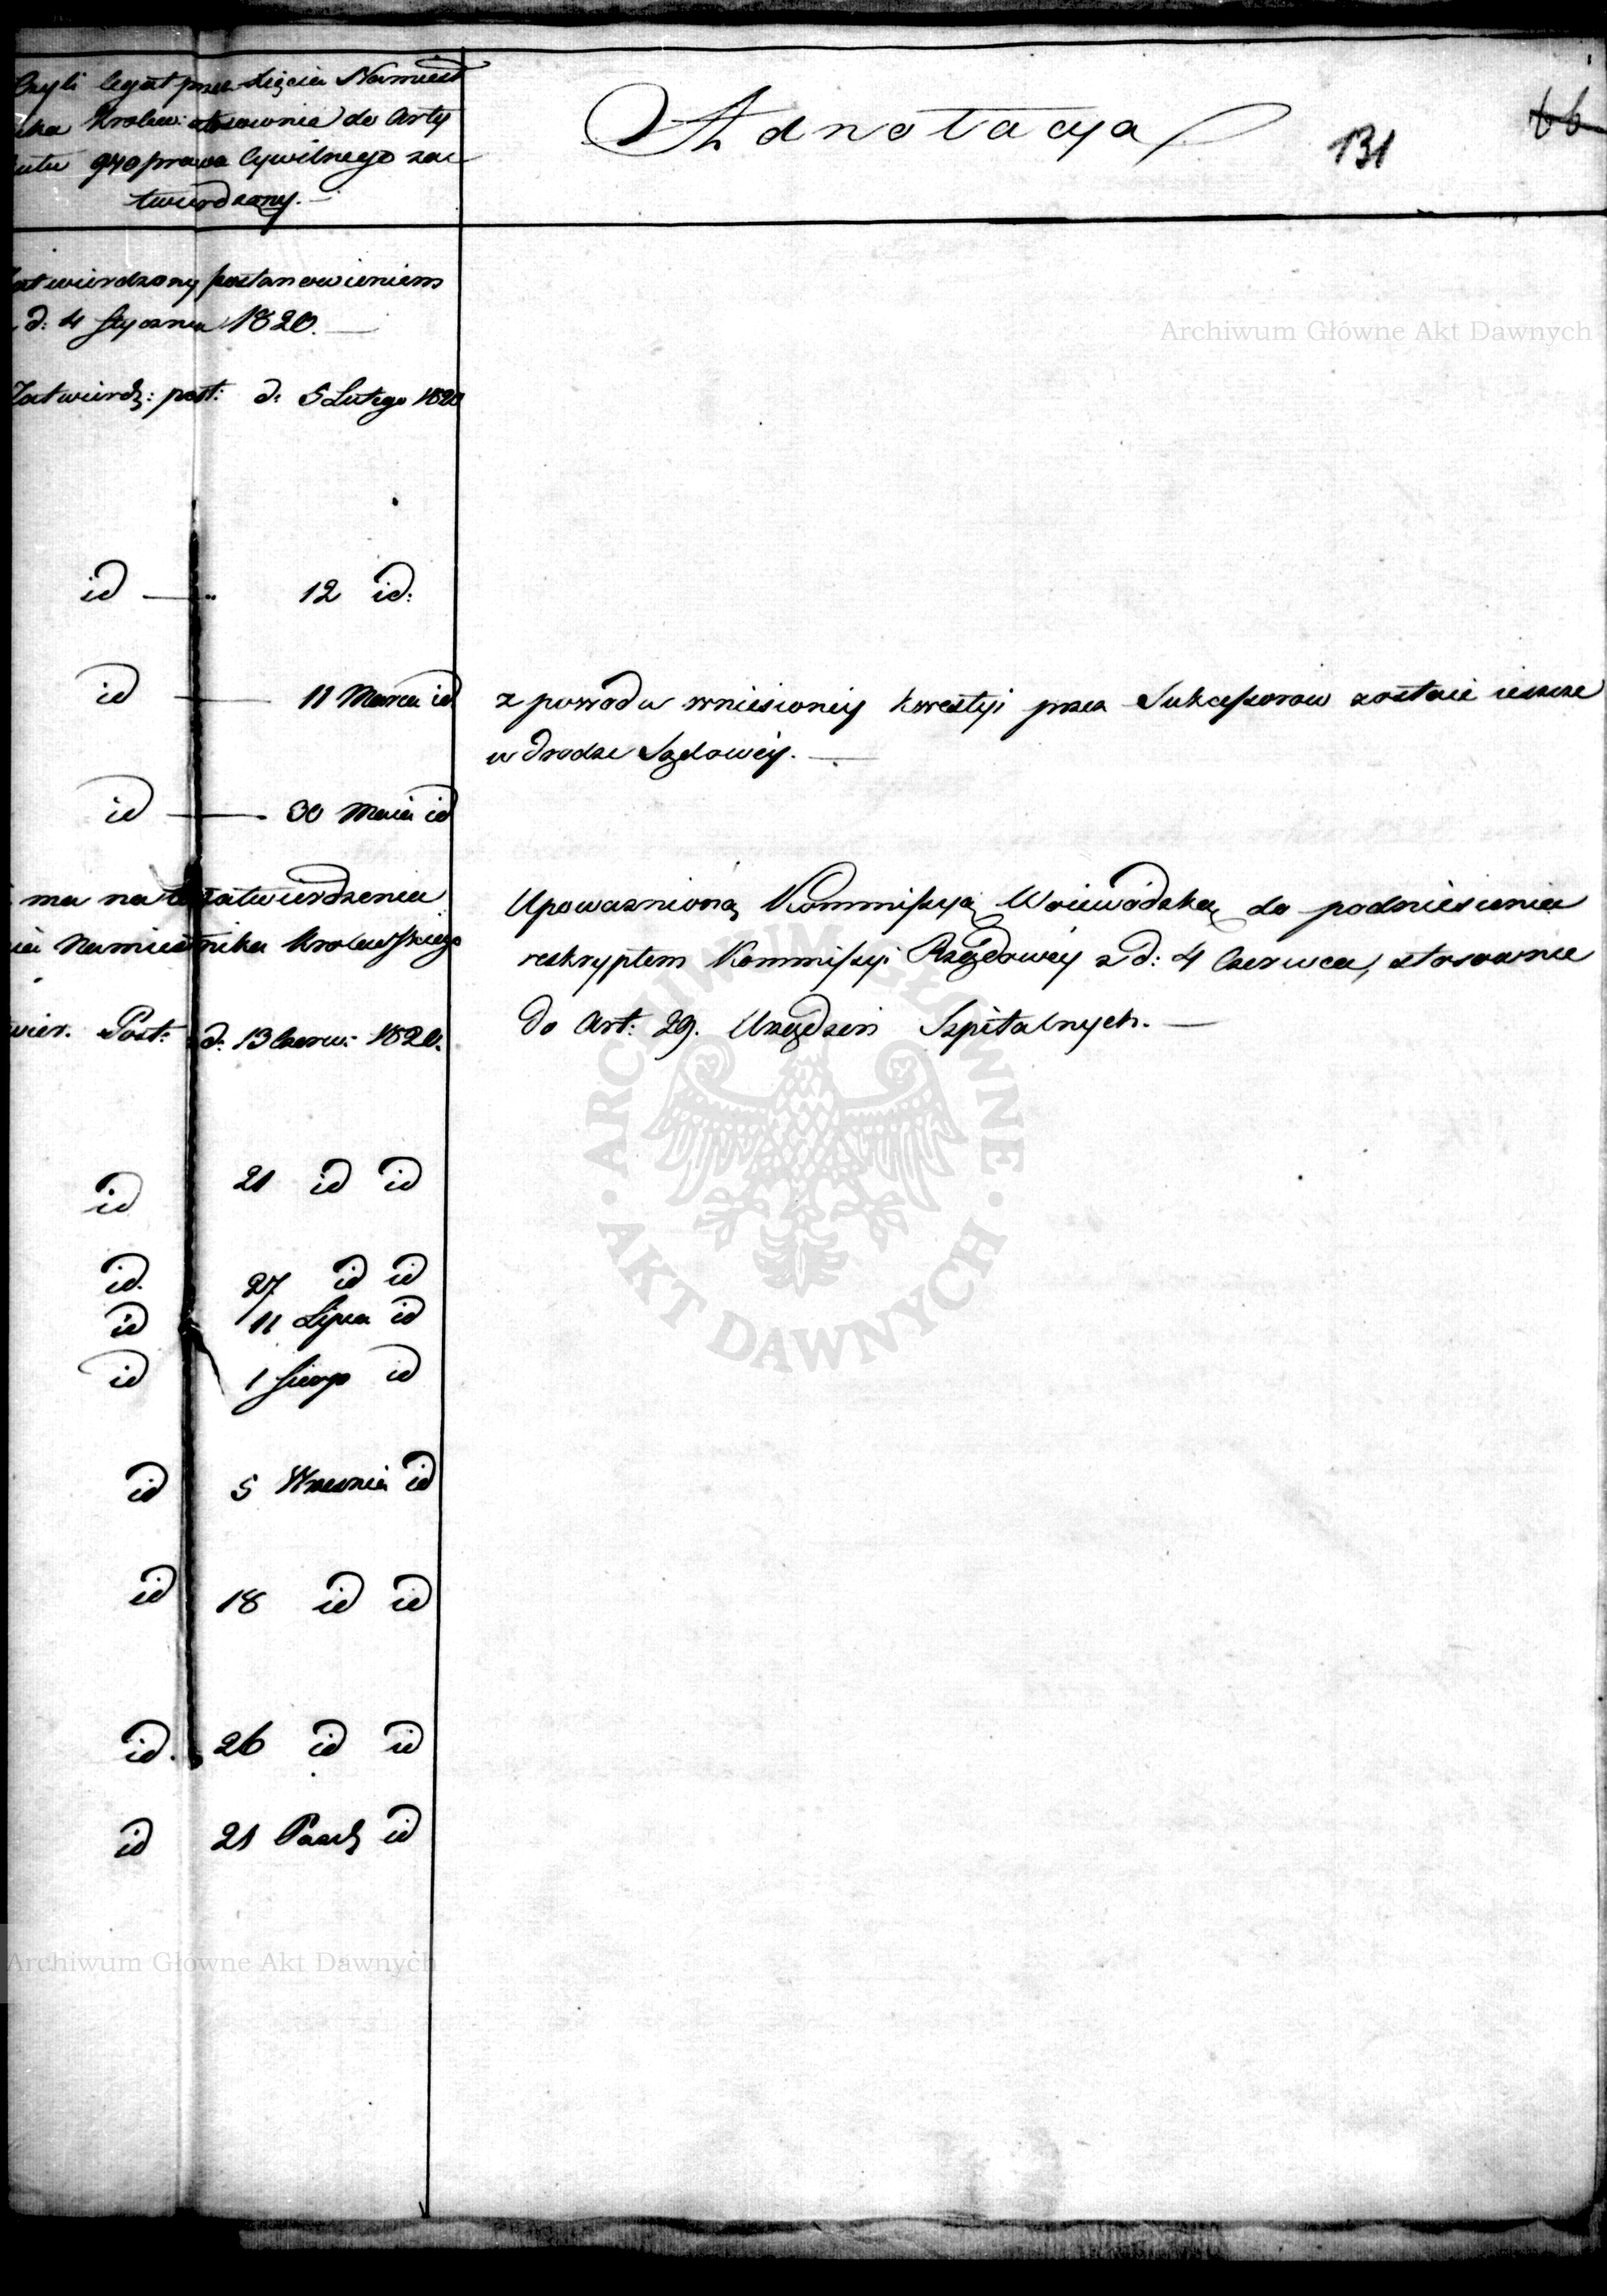 Czyli legat przez Xięcia Namiest
nika Krolew: stosownie do Arty
kułu 940 prawa Cywilnego zat
twierdzony.
Adnotacya
131
66
Zatwierdzony postanowieniem
d: 4 Stycznia 1820.
Archiwum Główne Akt Dawnych
Zatwierdz: post: d: 5 Lutego 1820
id 12 id:
id 11 Marca id
z powodu wniesioney kwestyi przez Sukcessorow zostaie ieszcze
w drodze Sądowéy.
id 30 Maia id
ma na to zatwierdzenia
Namiestnika Krolewskiego
Upoważnioną Kommissyą Woiewódzką do podniesienia
reskryptem Kommissyi Rządowéy z d: 4 Czerwca, stosownie
do Art: 29. Urządzeń Szpitalnych.
Post: d: 13 Czerw: 1820.
id 21 id id
id. 27 id id
id 11 Lipca id
id 1 Sierp id
id 5 Wrzesnia id
id 18 id id
id. 26 id id
id 21 Pazdz id
ARCHIWUM GŁÓWNE
AKT DAWNYCH
Archiwum Główne Akt Dawnych